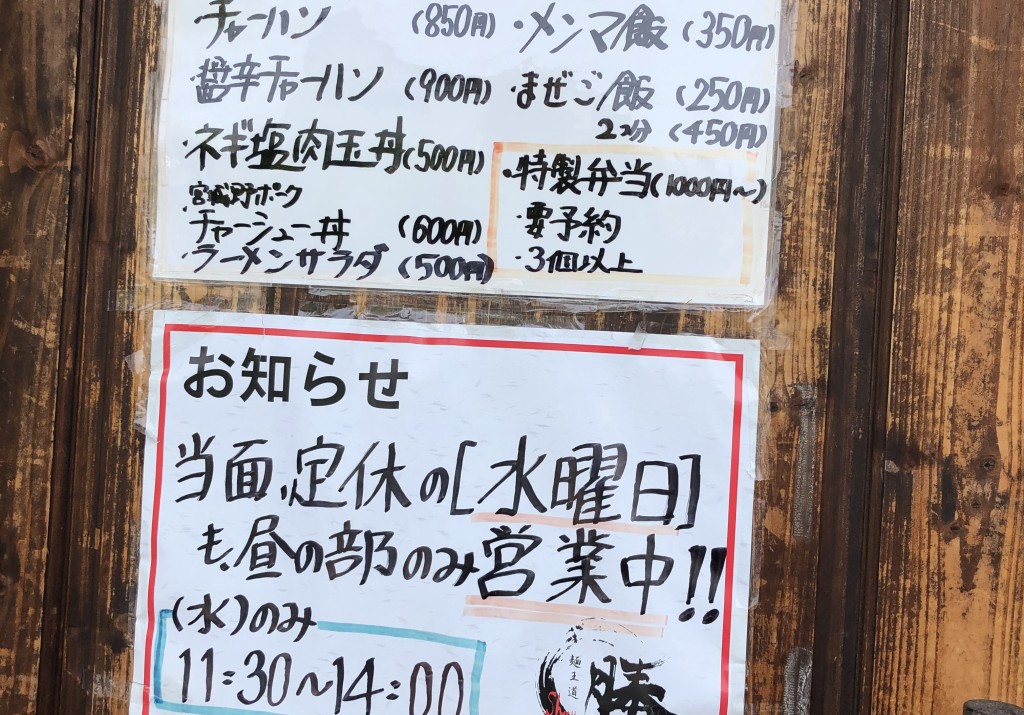 ・チャーハン (850円)
・旨辛チャーハン (900円)
・ネギ塩肉玉丼 (500円)
・宮城野ポーク
チャーシュー丼 (600円)
・ラーメンサラダ (500円)
・メンマ飯 (350円)
・まぜご飯 (250円)
2コ分 (450円)
・特製弁当 (1000円〜)
・要予約
・3個以上
お知らせ
当面、定休の[水曜日]
も、昼の部のみ営業中!!
(水)のみ
11:30〜14:00
麺王道
勝